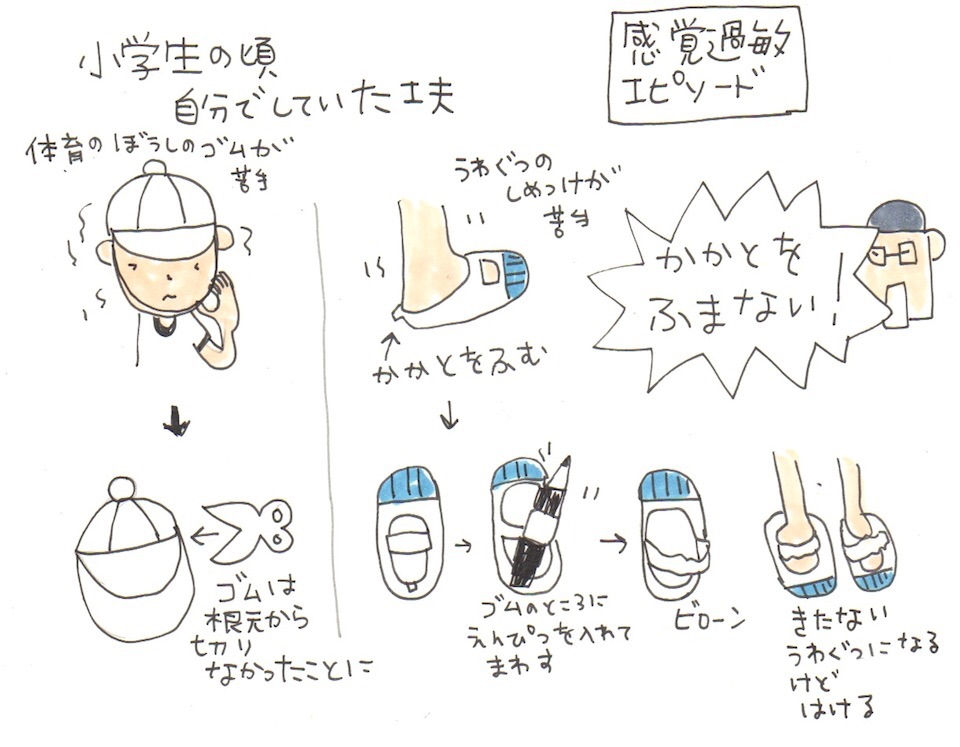 小学生の頃
自分でしていた工夫
感覚過敏
エピソード
体育のぼうしのゴムが
苦手
うわぐつの
しめつけが
苦手
かかとを
ふまない!
かかとをふむ
ゴムは
根元から
切り
なかったことに
ゴムのところに
えんぴつを入れて
まわす
ビローン
きたない
うわぐつになる
けど
はける